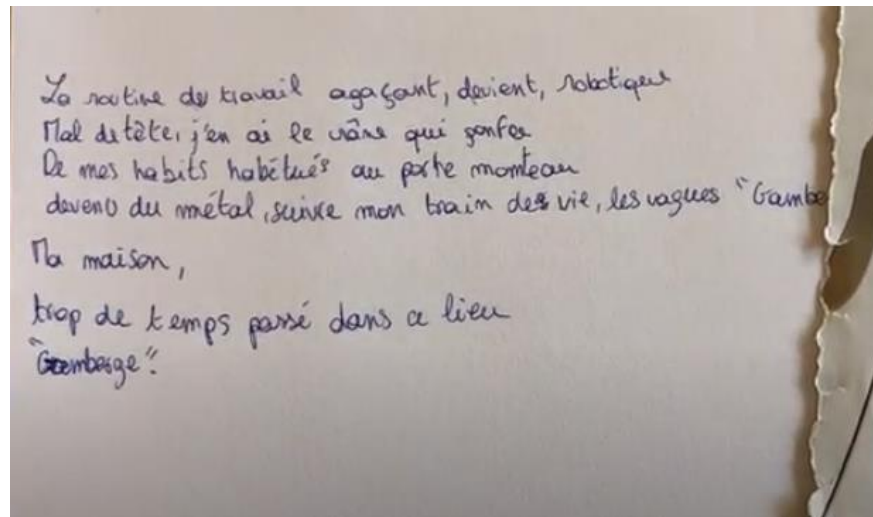 La routine de travail agaçant, devient, robotique
Mal de tête, j'en ai le crâne qui gonfle
De mes habits habitués au porte monteau
devenu du métal, suivre mon train de vie, les vagues "Gambe
Ma maison,
trop de temps passé dans ce lieu
"Gamberge".